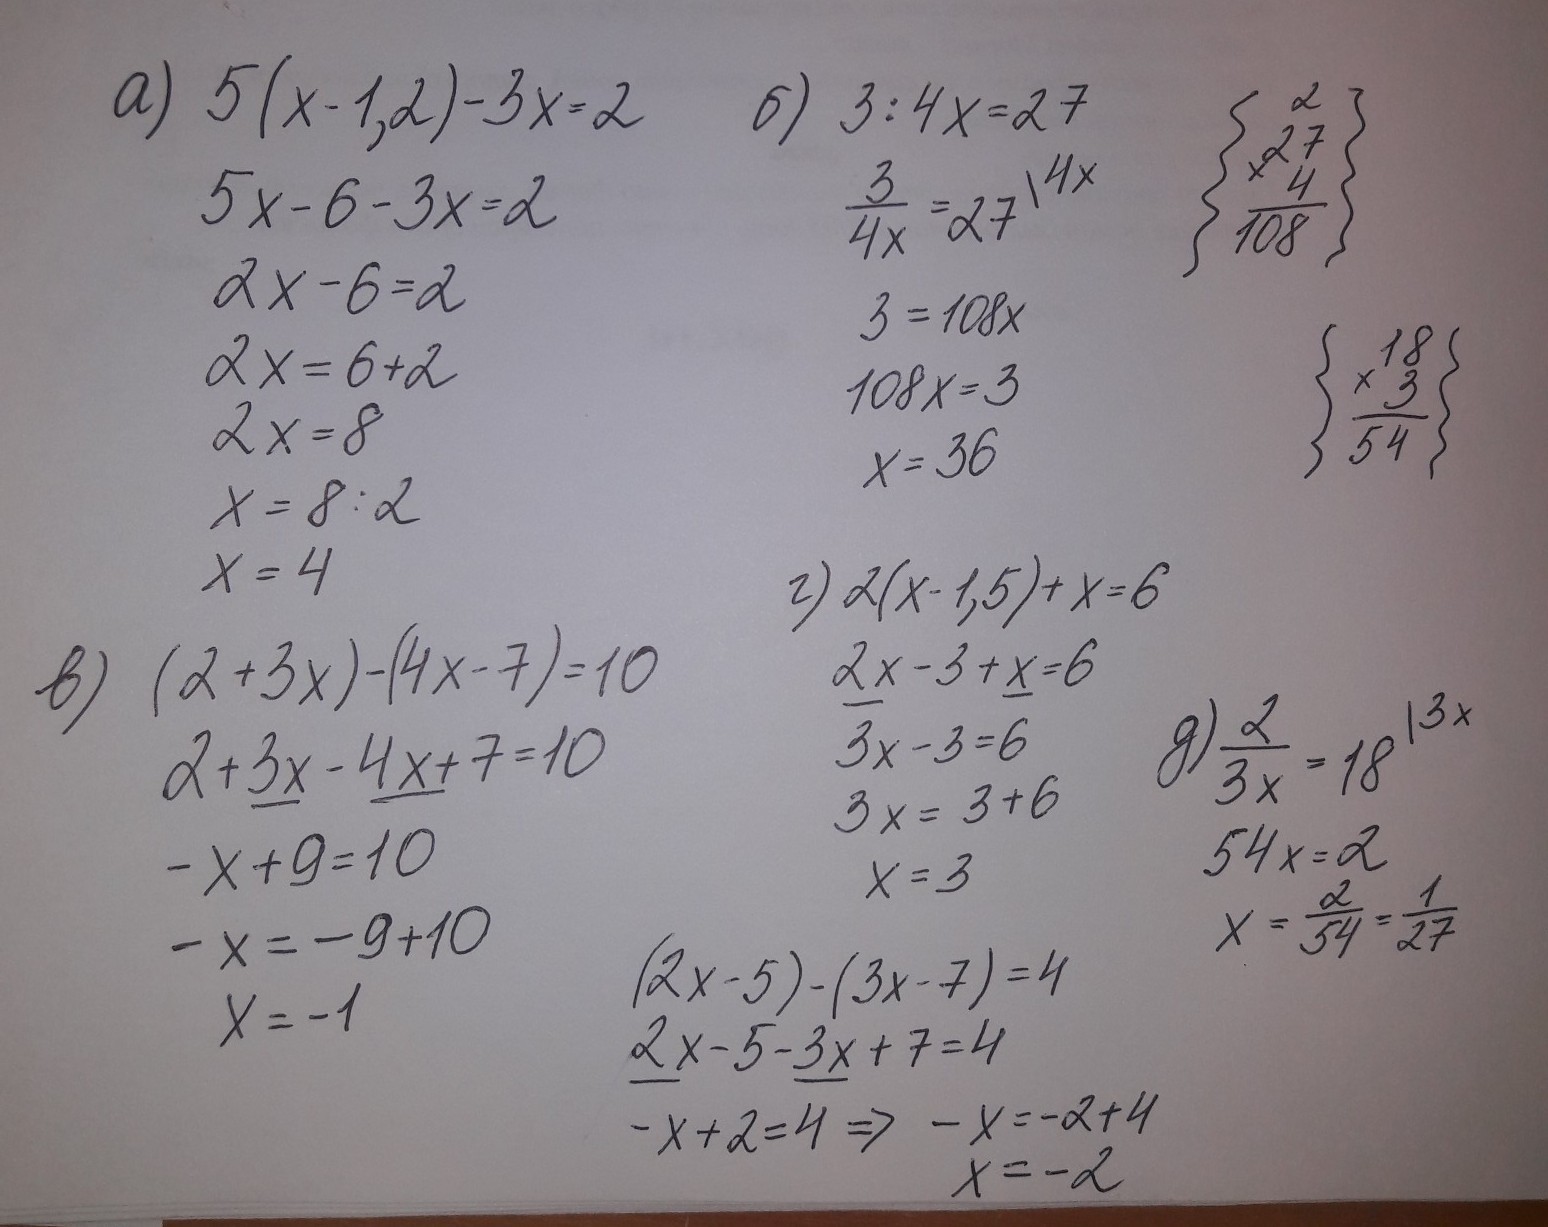 а) 5(x-1,2)-3x=2
5x-6-3x=2
2x-6=2
2x=6+2
2x=8
x=8:2
x=4
б) 3:4x=27
3/4x=27\4x
3=108x
108x=3
x=36
{ 2
27
x 4
108 }
{ 18
x 3
54 }
в) (2+3x)-(4x-7)=10
2+3x-4x+7=10
-x+9=10
-x=-9+10
x=-1
г) 2(x-1,5)+x=6
2x-3+x=6
3x-3=6
3x=3+6
x=3
д) 2/3x=18\3x
54x=2
x=2/54=1/27
(2x-5)-(3x-7)=4
2x-5-3x+7=4
-x+2=4 => -x=-2+4
x=-2